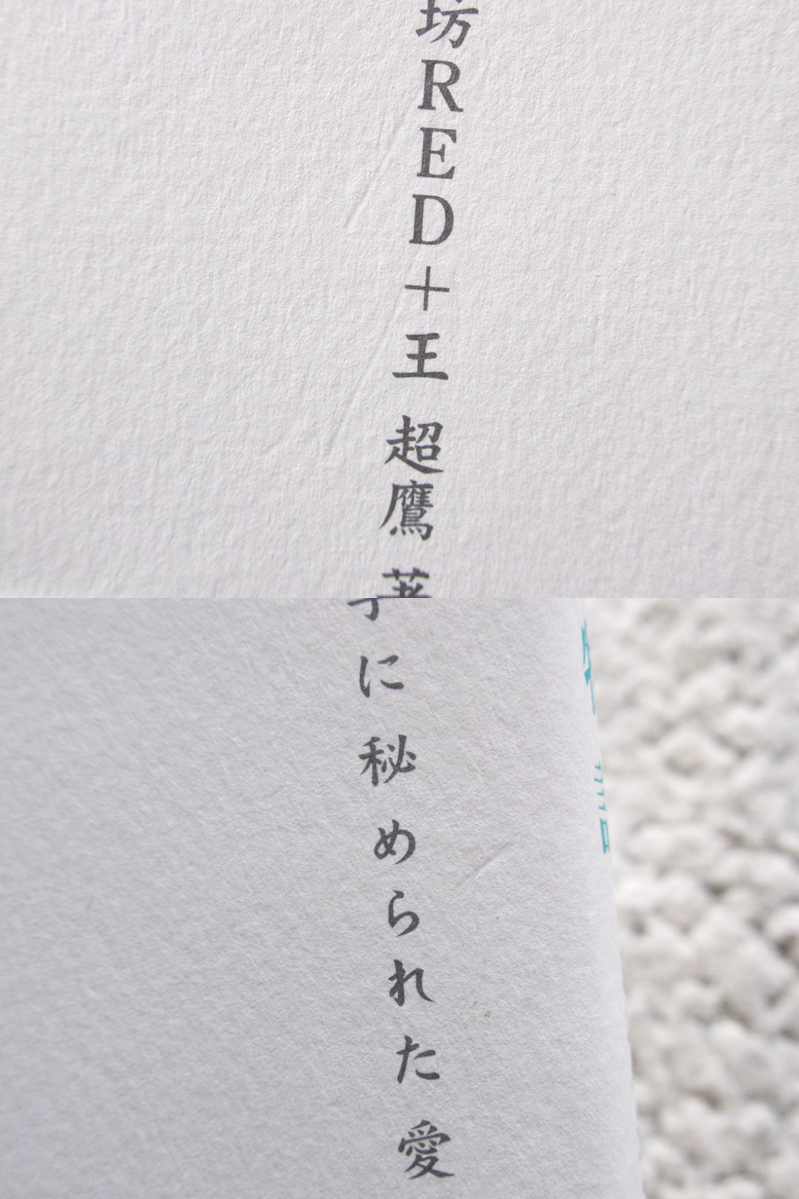 坊RED+王 超鷹 著
に秘められた愛